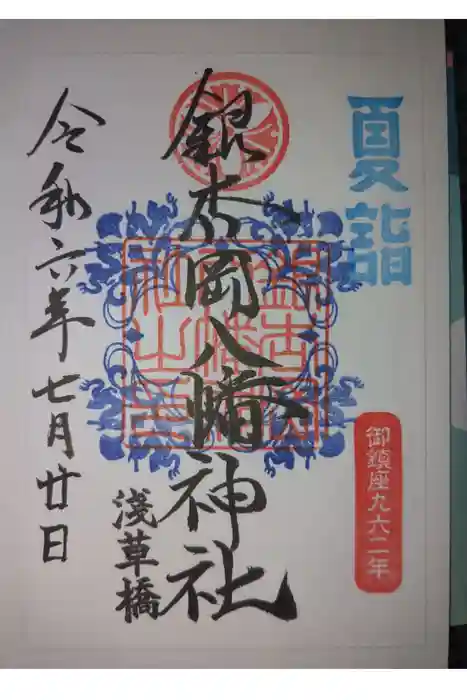 夏詣
御鎮座九六二年
銀杏岡八幡神社
浅草橋
令和六年七月廿日